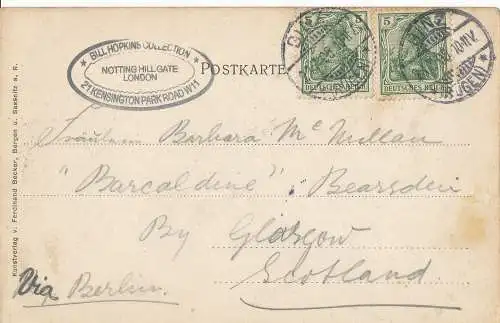 ★ BILL HOPKINS COLLECTION ★
NOTTING HILL GATE
LONDON
21 KENSINGTON PARK ROAD W11
POSTKARTE
5 5
DEUTSCHES REICH
5
DEUTSCHES REICH
BINZ
(RÜGEN)
BINZ
10-11V.
(RÜGEN)
Fräulein Barbara Mc Millan
"Barcaldine" Bearsden
By Glasgow
Scotland
Via Berlin.
Kunstverlag v. Ferdinand Becker, Bergen u. Sassnitz a. R.